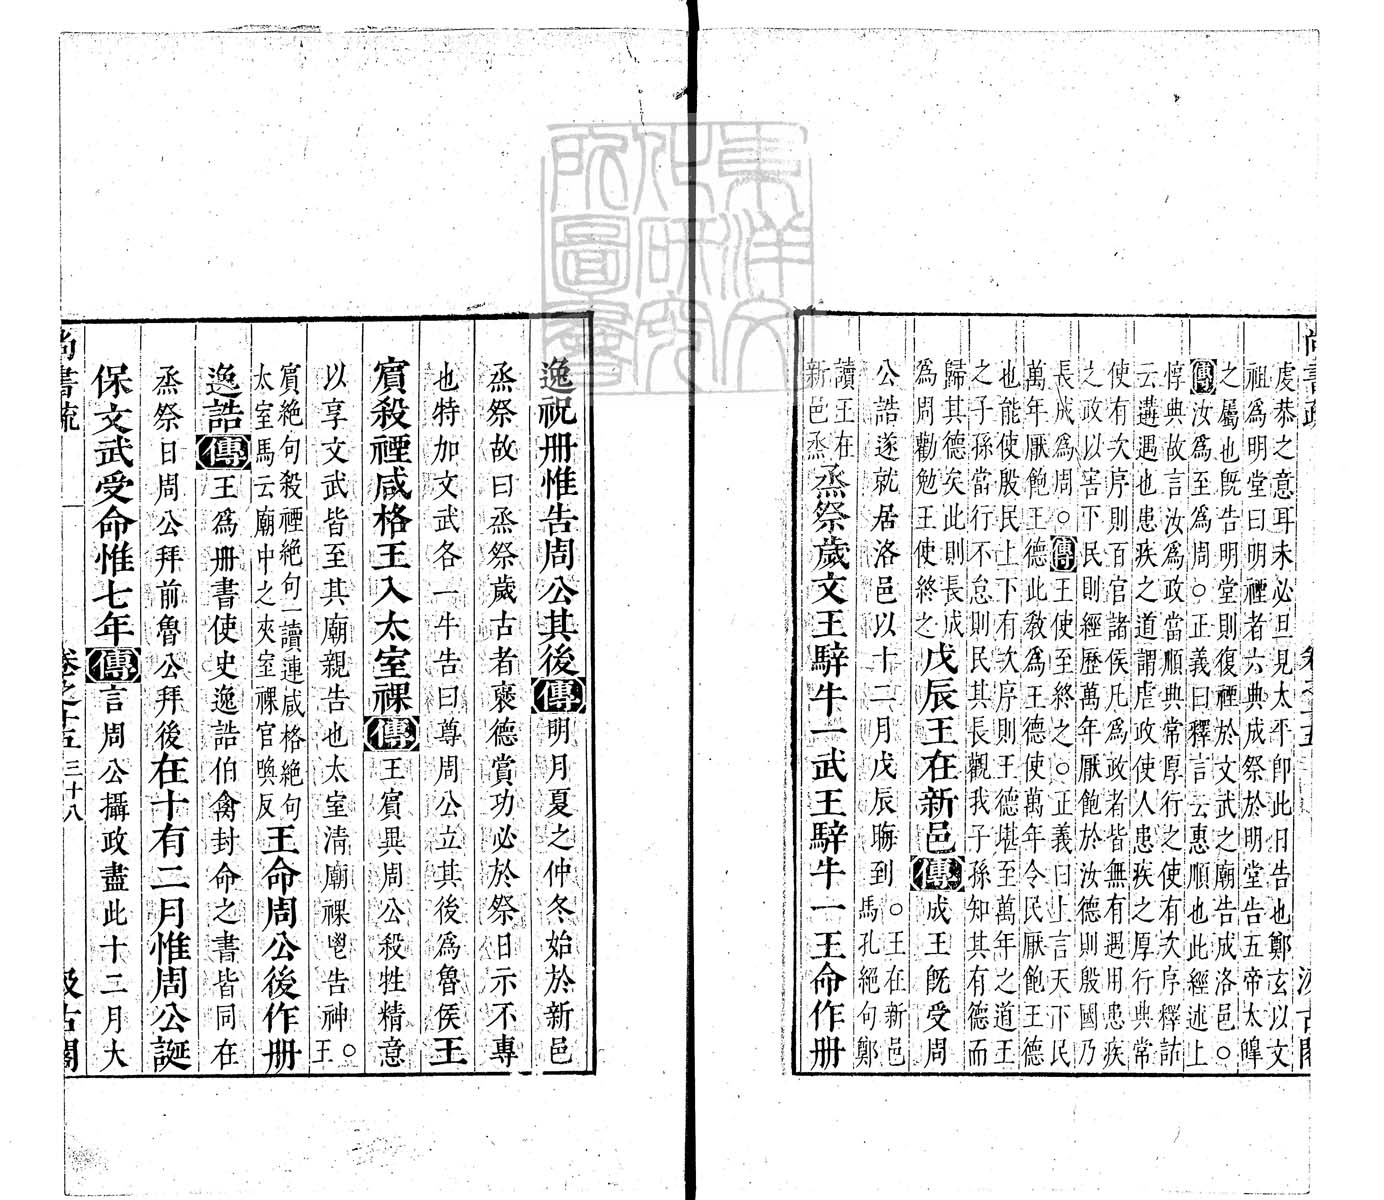 虔恭之意耳未必旦見太平卽此日告也鄭玄以文
祖爲明堂曰明禋者六典成祭於明堂告五帝太皥
之屬也旣告明堂則復禋於文武之廟告成洛邑○
傳汝爲至爲周○正義曰釋言云惠順也此經述上
惇典故言汝爲政當順典常厚行之使有次序釋詁
云遘遇也患疾之道謂虐政使人患疾之厚行典常
使有次序則百官諸侯凡爲政者皆無有遇用患疾
之政以害下民則經歷萬年厭飽於汝德則殷國乃
長成爲周○傳王使至終之○正義曰上言天下民
萬年厭飽王德此敎爲王德使萬年令民厭飽王德
也能使殷民上下有次序則王德堪至萬年之道王
之子孫當行不怠則民其長觀我子孫知其有德而
歸其德矣此則長成
爲周勸勉王使終之戊辰王在新邑傳成王旣受周
公誥遂就居洛邑以十二月戊辰晦到○王在新邑
馬孔絕句鄭
讀王在
新邑烝烝祭歲文王騂牛一武王騂牛一王命作册
逸祝册惟告周公其後傳明月夏之仲冬始於新邑
烝祭故曰烝祭歲古者襃德賞功必於祭日示不專
也特加文武各一牛告曰尊周公立其後爲魯侯王
賓殺禋咸格王入太室祼傳王賓異周公殺牲精意
以享文武皆至其廟親告也太室淸廟祼鬯告神○王
賓絕句殺禋絕句一讀連咸格絕句
太室馬云廟中之夾室祼官喚反王命周公後作册
逸誥傳王爲册書使史逸誥伯禽封命之書皆同在
烝祭日周公拜前魯公拜後在十有二月惟周公誕
保文武受命惟七年傳言周公攝政盡此十二月大
尚書疏
卷之十五
三十八
汲古閣